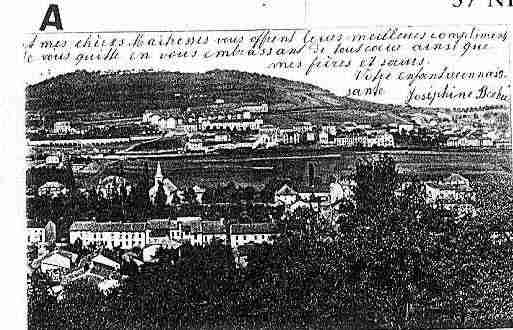 A
57 N
et mes chères Maîtresses vous offrent leurs meilleures compliments
Je vous quitte en vous embrassant de tout cœur ainsi que
mes frères et sœurs.
Votre enfant reconnais
sante Joséphine